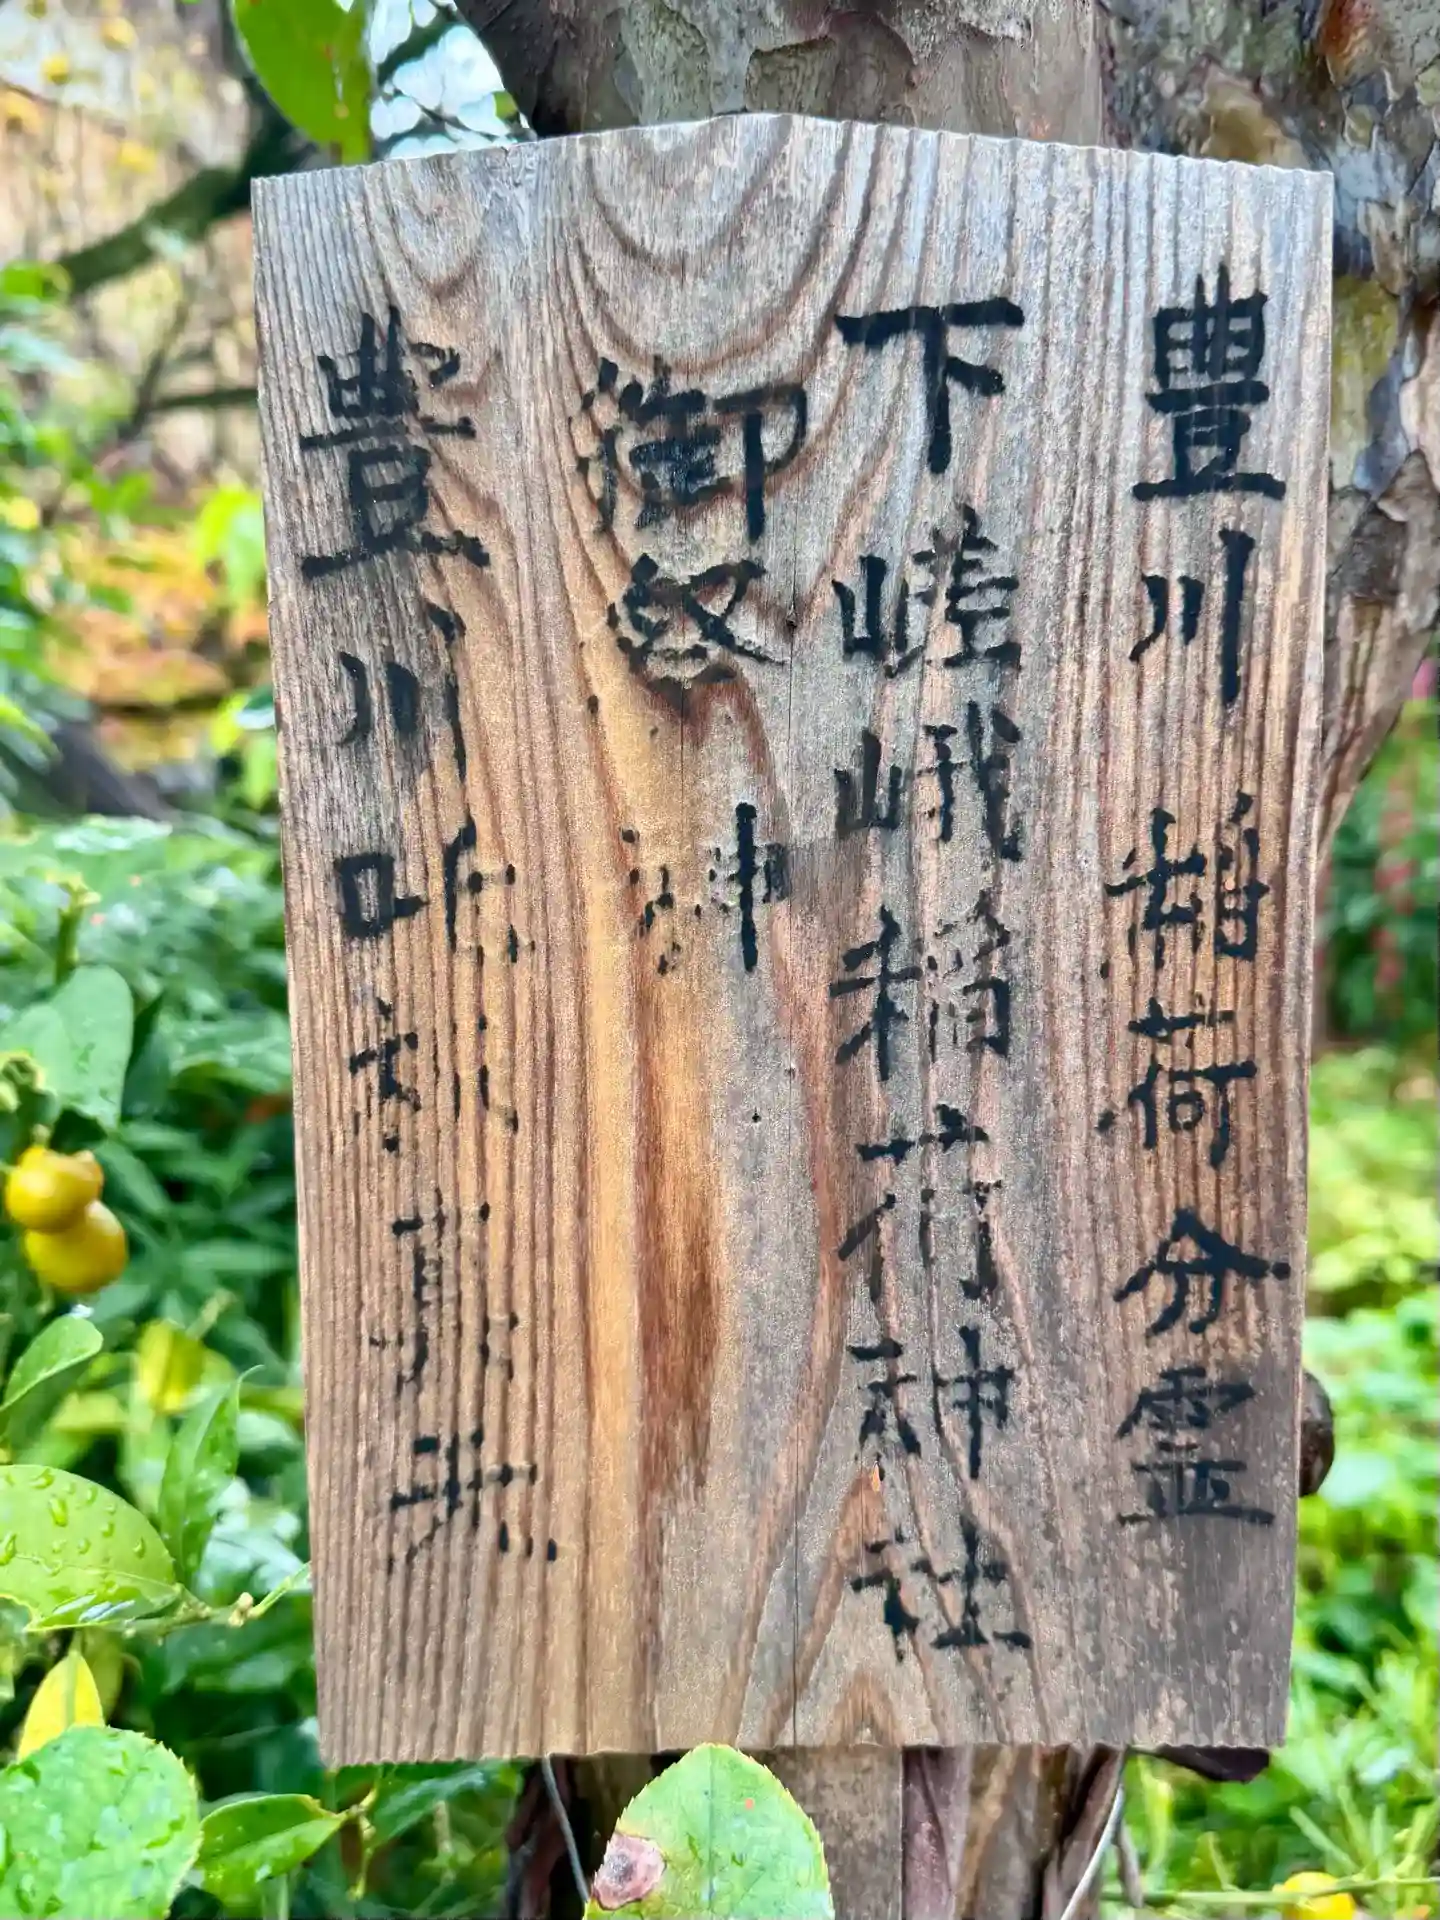 豊川稲荷分霊
下嵯峨稲荷神社
御祭神
豊川吒枳眞天